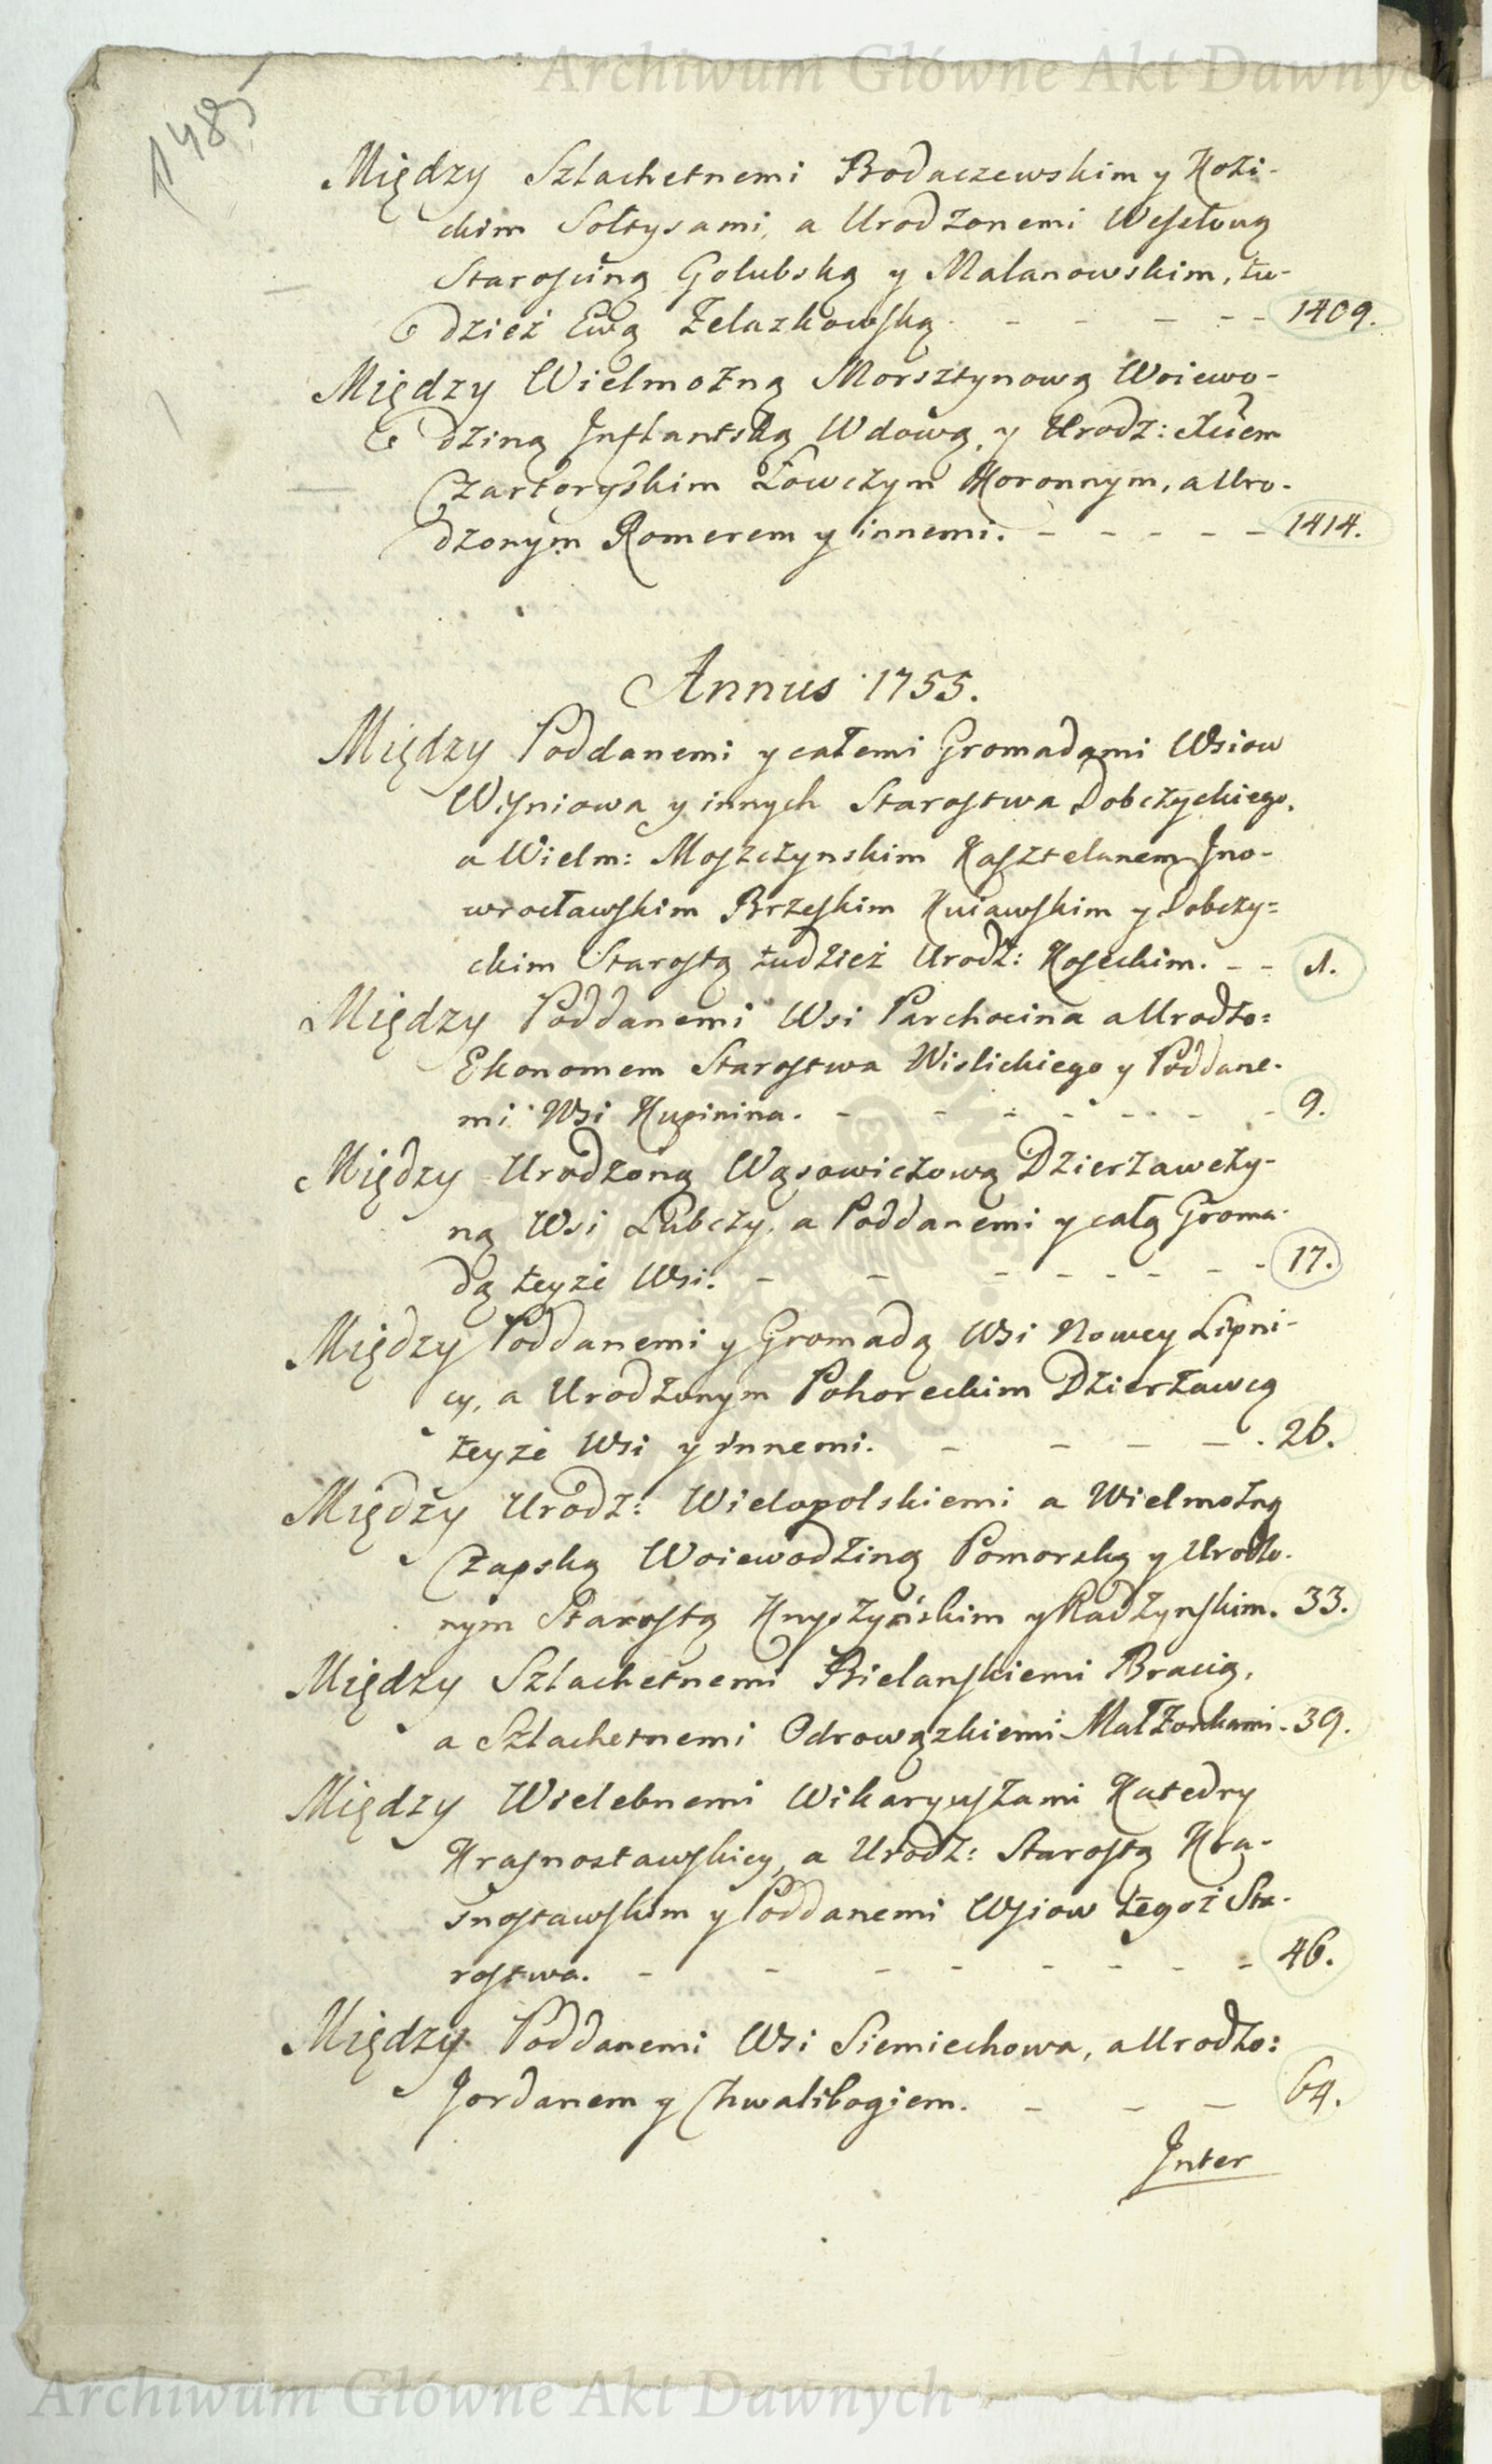 Archiwum Główne Akt Dawnych
1485
Między Szlachetnemi Rodaczewskim y Kozi-
ckim Sołtysami, a Urodzonemi Wesslową
Starościną Golubską y Malanowskim, tu-
dzież Ewą Zelazkowską. - - - - - 1409.
Między Wielmożną Morsztynową Woiewo-
dziną Inflantską Wdową, y Urodz: Xciem
Czartoryskim Łowczym Koronnym, a Uro-
dzonym Romerem y innemi. - - - - - 1414.
Annus 1755.
Między Poddanemi y całemi Gromadami Wsiow
Wiśniowa y innych Starostwa Dobczyckiego,
a Wielm: Moszczynskim Kasztelanem Jno-
wrocławskim Brzeskim Kuiawskim y Dobczy=
ckim Starostą tudzież Urodz: Koseckim. - - 1.
Między Poddanemi Wsi Parchocina a Urodzo:
Ekonomem Starostwa Wislickiego y Poddane-
mi Wsi Kupinina. - - - - - - - - 9.
Między Urodzoną Wąsowiczową Dzierzawczy-
ną Wsi Lubczy, a Poddanemi y całą Groma-
dą teyże Wsi. - - - - - - - - 17.
Między Poddanemi y Gromadą Wsi Nowey Lipni-
cy, a Urodzonym Pohoreckim Dzierzawcą
teyże Wsi y innemi. - - - - - 26.
Między Urodz: Wielopolskiemi a Wielmożną
Czapską Woiewodziną Pomorską y Urodzo-
nym Starostą Knyszyńskim y Radzynskim. 33.
Między Szlachetnemi Bielanskiemi Bracią,
a Szlachetnemi Odrowązkiemi Małżonkami. 39.
Między Wielebnemi Wikaryuszami Katedry
Krasnostawskiey, a Urodz: Starostą Kra-
snostawskim y Poddanemi Wsiow tegoż Sta-
rostwa. - - - - - - - - 46.
Między Poddanemi Wsi Siemiechowa, a Urodzo:
Jordanem y Chwalibogiem. - - - 64.
Inter
Archiwum Główne Akt Dawnych